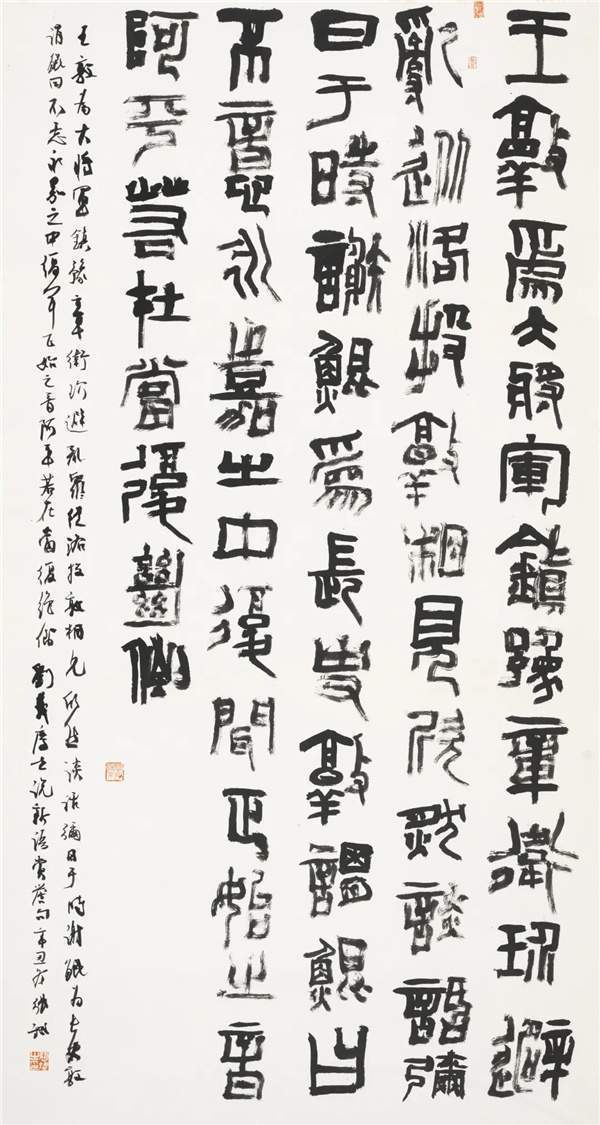 王敦爲大將軍鎮豫章衛玠避
亂從洛投敦相見欣然談話彌
日于時謝鯤爲長史敦謂鯤曰
不意永嘉之中復間正始之音
阿平若在當復絕倒
王敦为大将軍鎮豫章衛玠避亂從洛投敦相見欣然談話彌日于時謝鯤为長史敦
謂鯤曰不意永嘉之中復間正始之音阿平若在當復絕倒 劉義慶世說新語賞譽句辛丑